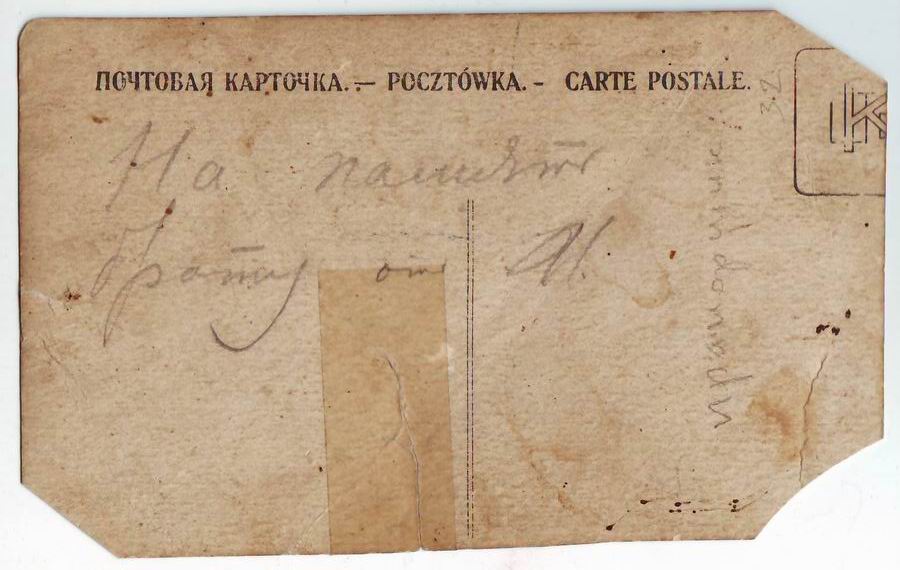 ПОЧТОВАЯ КАРТОЧКА. — POCZTÓWKA. - CARTE POSTALE.
На память
Брату от М.
32